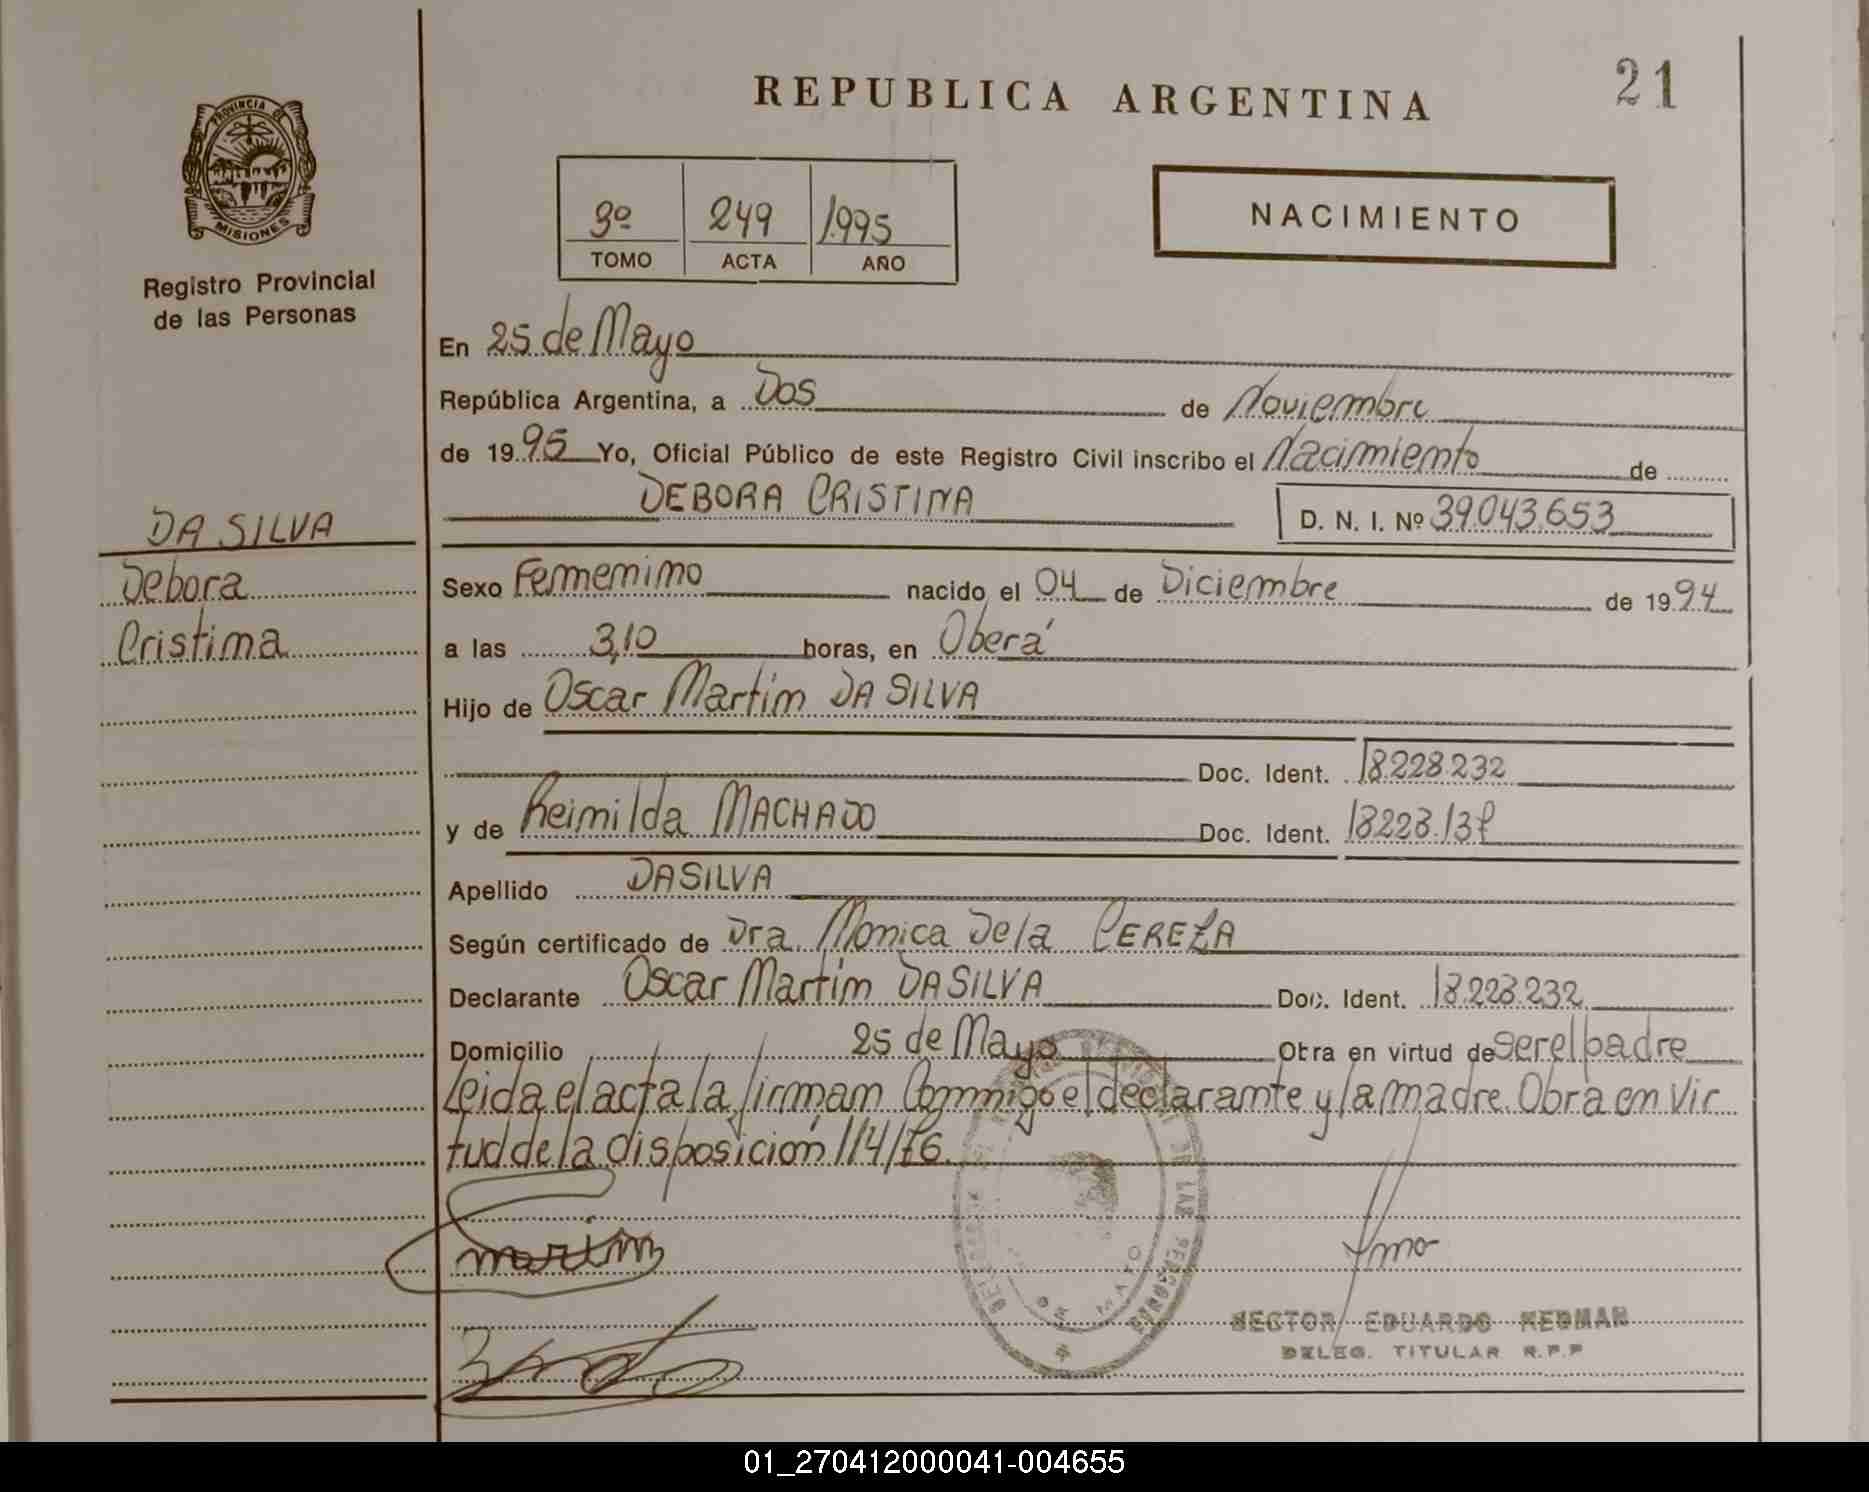 REPUBLICA ARGENTINA
21
PROVINCIA DE
MISIONES
Registro Provincial
de las Personas
3º 249 1995
TOMO ACTA AÑO
NACIMIENTO
En 25 de Mayo
República Argentina, a Dos de Noviembre
de 1995 Yo, Oficial Público de este Registro Civil inscribo el Nacimiento de
DEBORA CRISTINA D. N. I. Nº 39.043.653
DA SILVA
Debora
Cristina
Sexo Femenino nacido el 04 de Diciembre de 1994
a las 3,10 horas, en Oberá
Hijo de Oscar Martin DA SILVA
Doc. Ident. 18.228.232
y de Reinilda MACHADO Doc. Ident.
Apellido DA SILVA
Según certificado de Dra. Monica Dela PEREZA
Declarante Oscar Martin DA SILVA Doc. Ident. 18.228.232
Domicilio 25 de Mayo Obra en virtud de ser el padre
Leida el acta la firman Conmigo el declarante y la madre. Obra en Vir
tud de la disposición 114/76.
martin
DE LAS PERSONAS
DE MAYO
HECTOR EDUARDO REDMAN
DELEG. TITULAR R.P.P
01_270412000041-004655